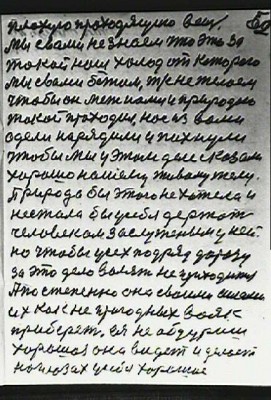 плохую проходящую вещ.
Мы с вами не знаем что это за
такой наш холод от которого
мы с вами бежим, и не желаем
чтобы он меж нами и природою
такой проходил, нас з вами
одели нарядили и пихнули
чтобы мы у этом деле сказали
хорошо нашему живому телу.
Природа бы этого не хотела и
не стала бы у себя держат
человека за служеным у ней
но чтобы усех подряд дарозу
за это дело волят не приходится
А постепенно она своими силами
их как не пригодных
приберет, ея не обдуриш
хорошаз она видит и делает
на глазах усим хорошое